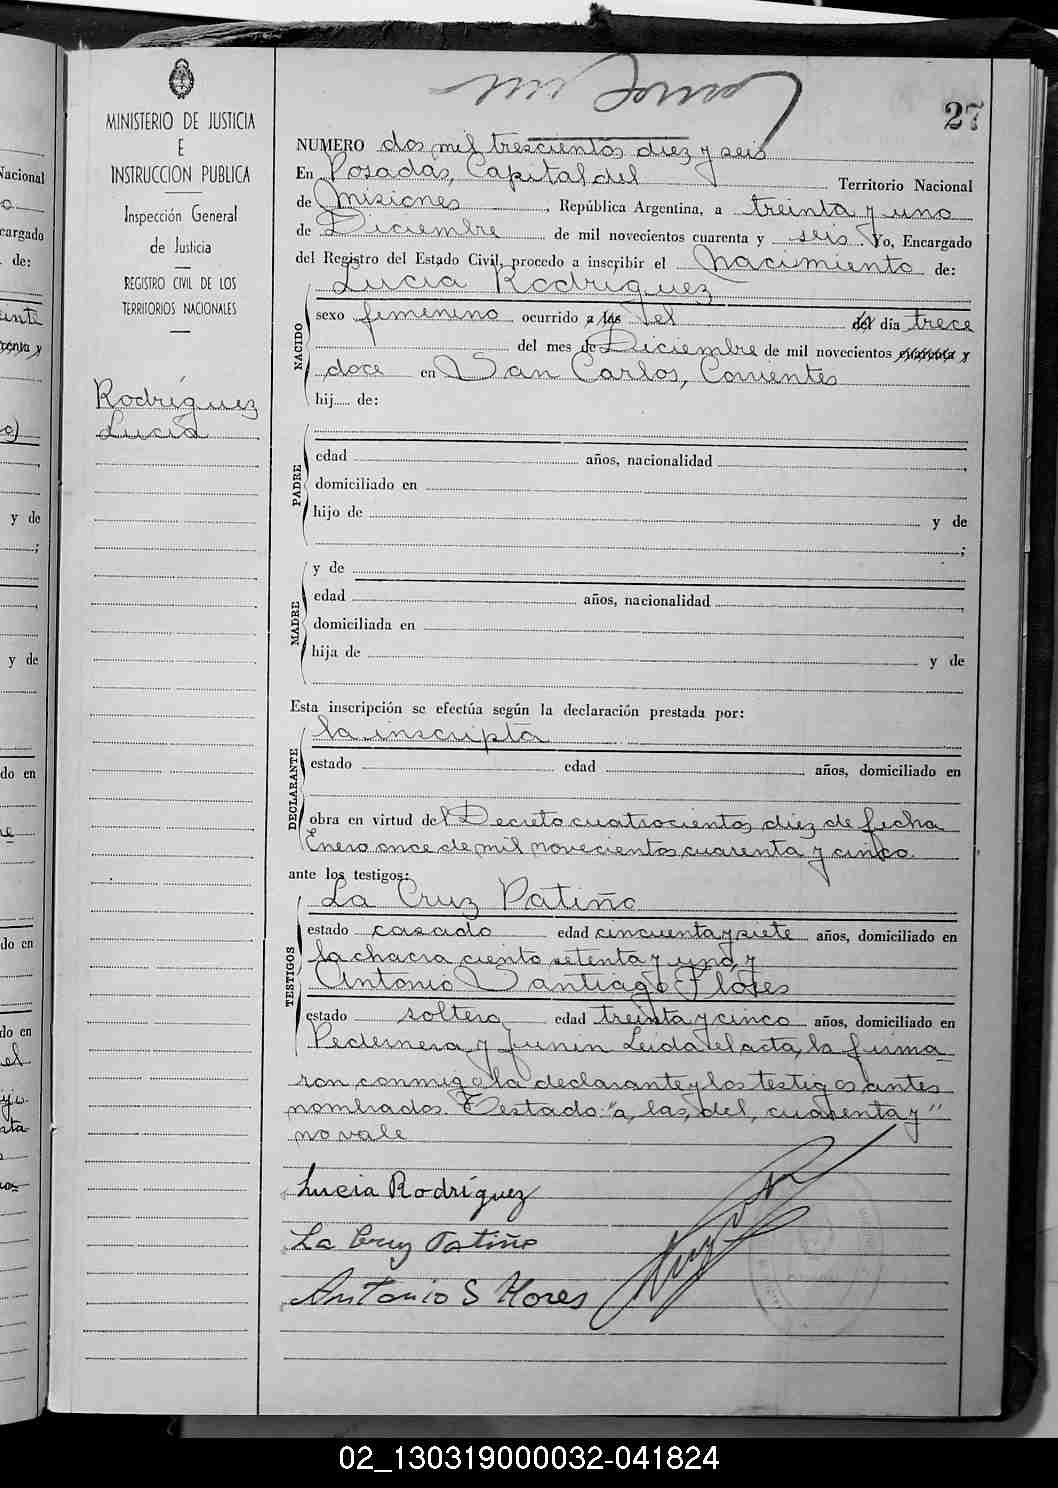 27
MINISTERIO DE JUSTICIA
E
INSTRUCCION PUBLICA
Inspección General
de Justicia
REGISTRO CIVIL DE LOS
TERRITORIOS NACIONALES
Rodríguez
Lucía
NUMERO dos mil trescientos diez y seis
En Posadas, Capital del Territorio Nacional
de Misiones, República Argentina, a treinta y uno
de Diciembre de mil novecientos cuarenta y seis. Yo, Encargado
del Registro del Estado Civil, procedo a inscribir el Nacimiento de:
Lucía Rodríguez
NACIDO
sexo femenino ocurrido a las del del día trece
del mes de Diciembre de mil novecientos cuarenta y
doce en San Carlos, Corrientes
hij de:
PADRE
edad años, nacionalidad
domiciliado en
hijo de y de
;
MADRE
y de
edad años, nacionalidad
domiciliada en
hija de y de
Esta inscripción se efectúa según la declaración prestada por:
la inscripta
DECLARANTE
estado edad años, domiciliado en
obra en virtud del Decreto cuatrocientos diez de fecha
Enero once de mil novecientos cuarenta y cinco
ante los testigos:
La Cruz Patiño
TESTIGOS
estado casado edad cincuenta y siete años, domiciliado en
la chacra ciento setenta y uno, y
Antonio Santiago Flores
estado soltero edad treinta y cinco años, domiciliado en
Pedernera y Junin Leida el acta, la firma
ron conmigo la declarante y los testigos antes
nombrados. Testado: "a, las, del, cuarenta y"
no vale
Lucia Rodríguez
La Cruz Patiño
Antonio S Flores
02_130319000032-041824